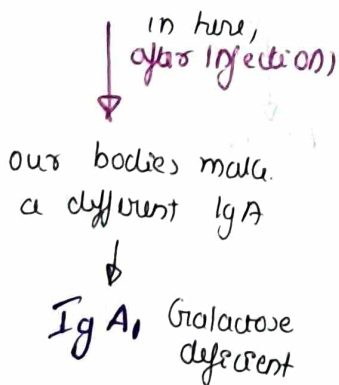 in here,
after infection)
our bodies make
a different IgA
IgA₁ Galactose
deficient